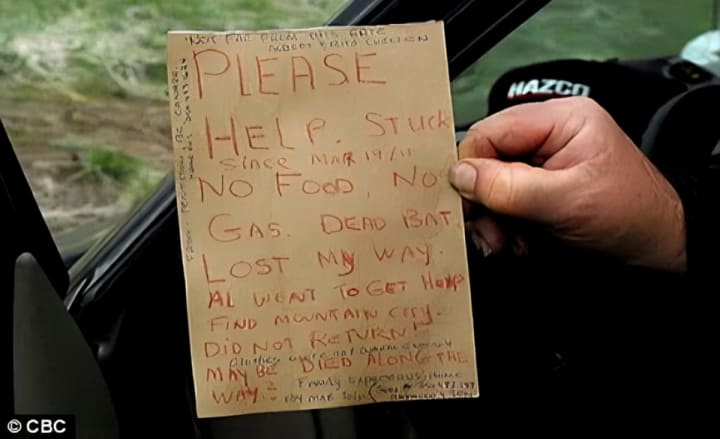 NOT FAR FROM THIS GATE
PLEASE
HELP. STUCK
SINCE MAR 19/11
NO FOOD, NO
GAS. DEAD BAT.
LOST MY WAY.
AL WENT TO GET HELP
FIND MOUNTAIN CITY.
DID NOT RETURN!
MAY BE DIED ALONG THE
WAY.
FROM: PENTICTON, BC CANADA
HAZCO
© CBC